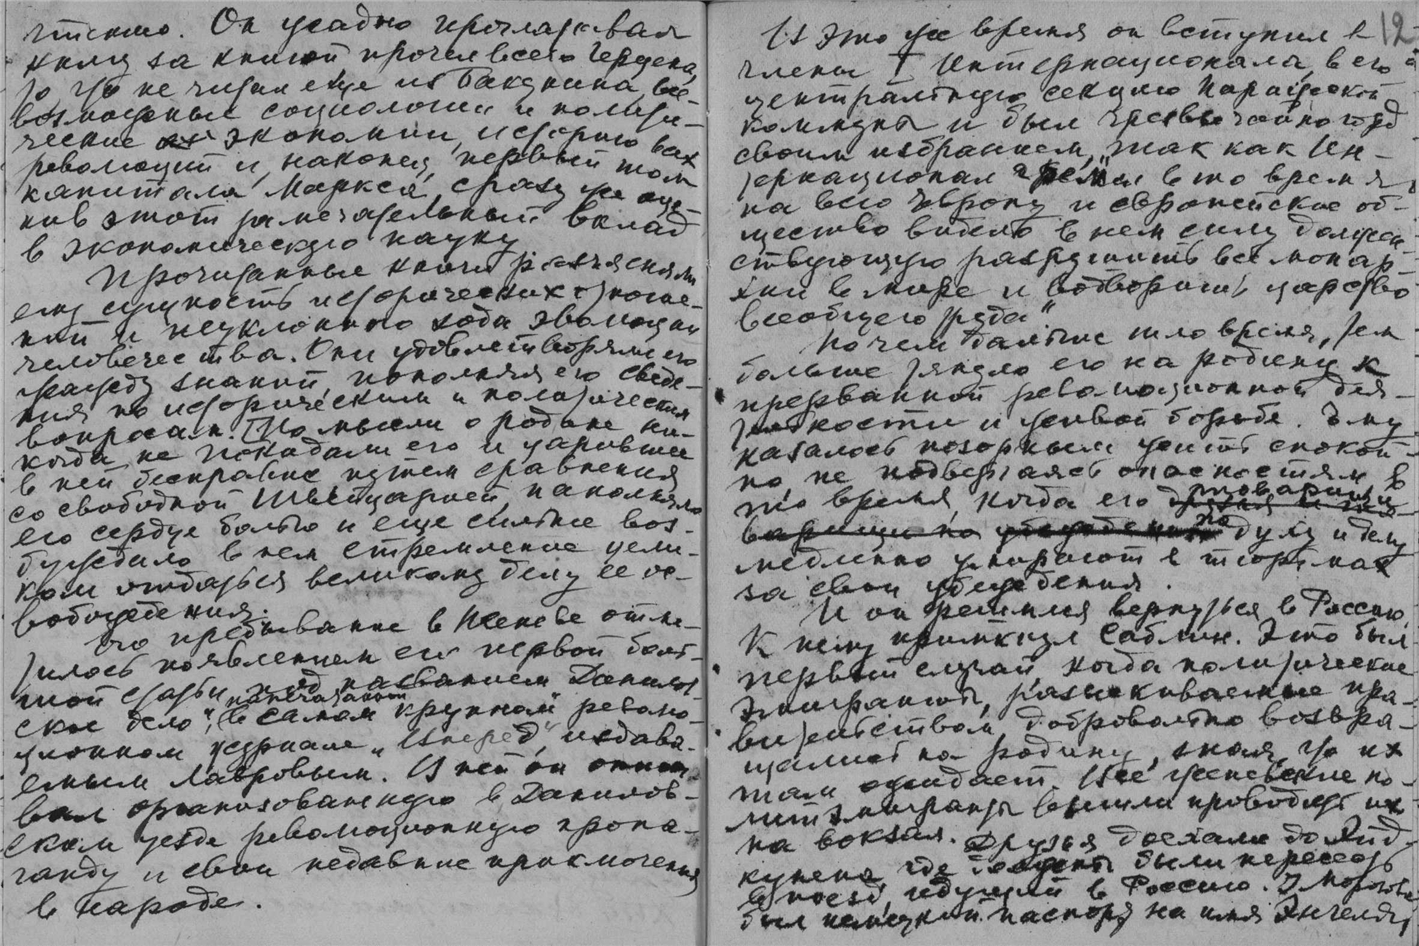 гтению. Он жадно проглатывал
книгу за книгой прочел всего Герцена,
то что не читал еще из Бакунина, все-
возможные социологии и полити-
ческие экономии, историю всех
революций и, наконец, первый том
капитала Маркса, сразу же оце-
нив этот замечательный вклад
в экономическую науку.
Прочитанные книги разъясняли
ему сущность исторических отноше-
ний и неуклонного хода эволюции
человечества. Они удовлетворяли его
жажду знаний, пополняя его сведе-
ния по историческим и политическим
вопросам. [Но мысли о родине ни-
когда не покидали его и царившее
в ней бесправие путем сравнения
со свободной Швейцарией, наполняло
его сердце болью и еще сильнее воз-
буждало в нем стремление цели-
ком отдаться великому делу ее ос-
вобождения.
Его пребывание в Женеве отме-
тилось появлением его первой боль-
шой статьи под названием Данилов-
ское дело", напечатанной
"в самом крупном револю-
ционном журнале „Вперед", издава-
емым Лавровым. В ней он описы-
вал организованную в Данилов-
ском уезде революционную пропа-
ганду и свои недавние приключения
в народе.
12
В это же время он вступил в
члены Интернационала, в его
центральную секцию Парижской
коммуны и был чрезвычайно горд
своим избранием, так как Ин-
тернационал „гремел" в то время
на всю Европу и европейское об-
щество видело в нем силу долженст-
ствующую разрушить все монар-
хии в мире и „водворить царство
всеобщего труда"
Но чем дальше шло время, тем
больше тянуло его на родину к
прерванной революционной дея-
тельности и живой борьбе. Ему
казалось позорным жить спокой-
но не подвергаясь опасностям в
то время, когда его друзья и то-
товарищи
варищи по убеждению по духу и делу
медленно умирают в тюрьмах
за свои убеждения.
И он решился вернуться в Россию.
К нему примкнул Саблин. Это был
первый случай когда политические
эмигранты, разыскиваемые пра-
вительством добровольно возвра-
щались на родину, зная, что их
там ожидает. Все женевские по-
литэмигранты вышли проводить их
на вокзал. Друзья доехали до Эйд-
кунена, где должны были пересесть
в поезд, идущий в Россию. У Морозова
был немецкий паспорт на имя Энгеля,